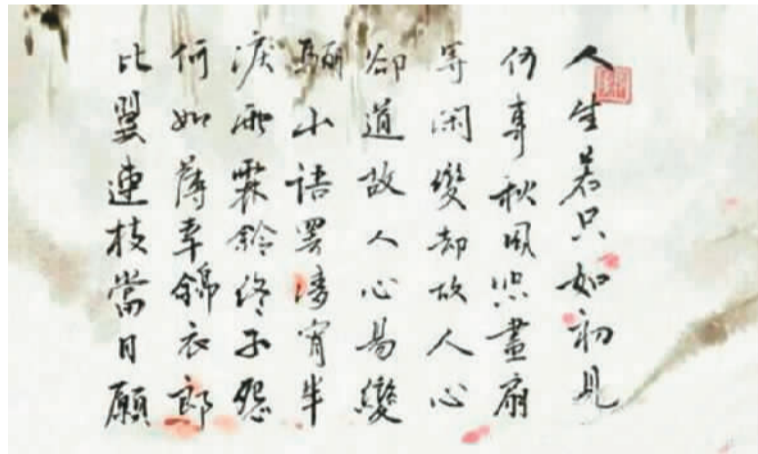 人生若只如初見
何事秋風悲畫扇
等閑變却故人心
卻道故人心易變
驪山語罷清宵半
淚雨霖鈴終不怨
何如薄幸錦衣郎
比翼連枝當日願